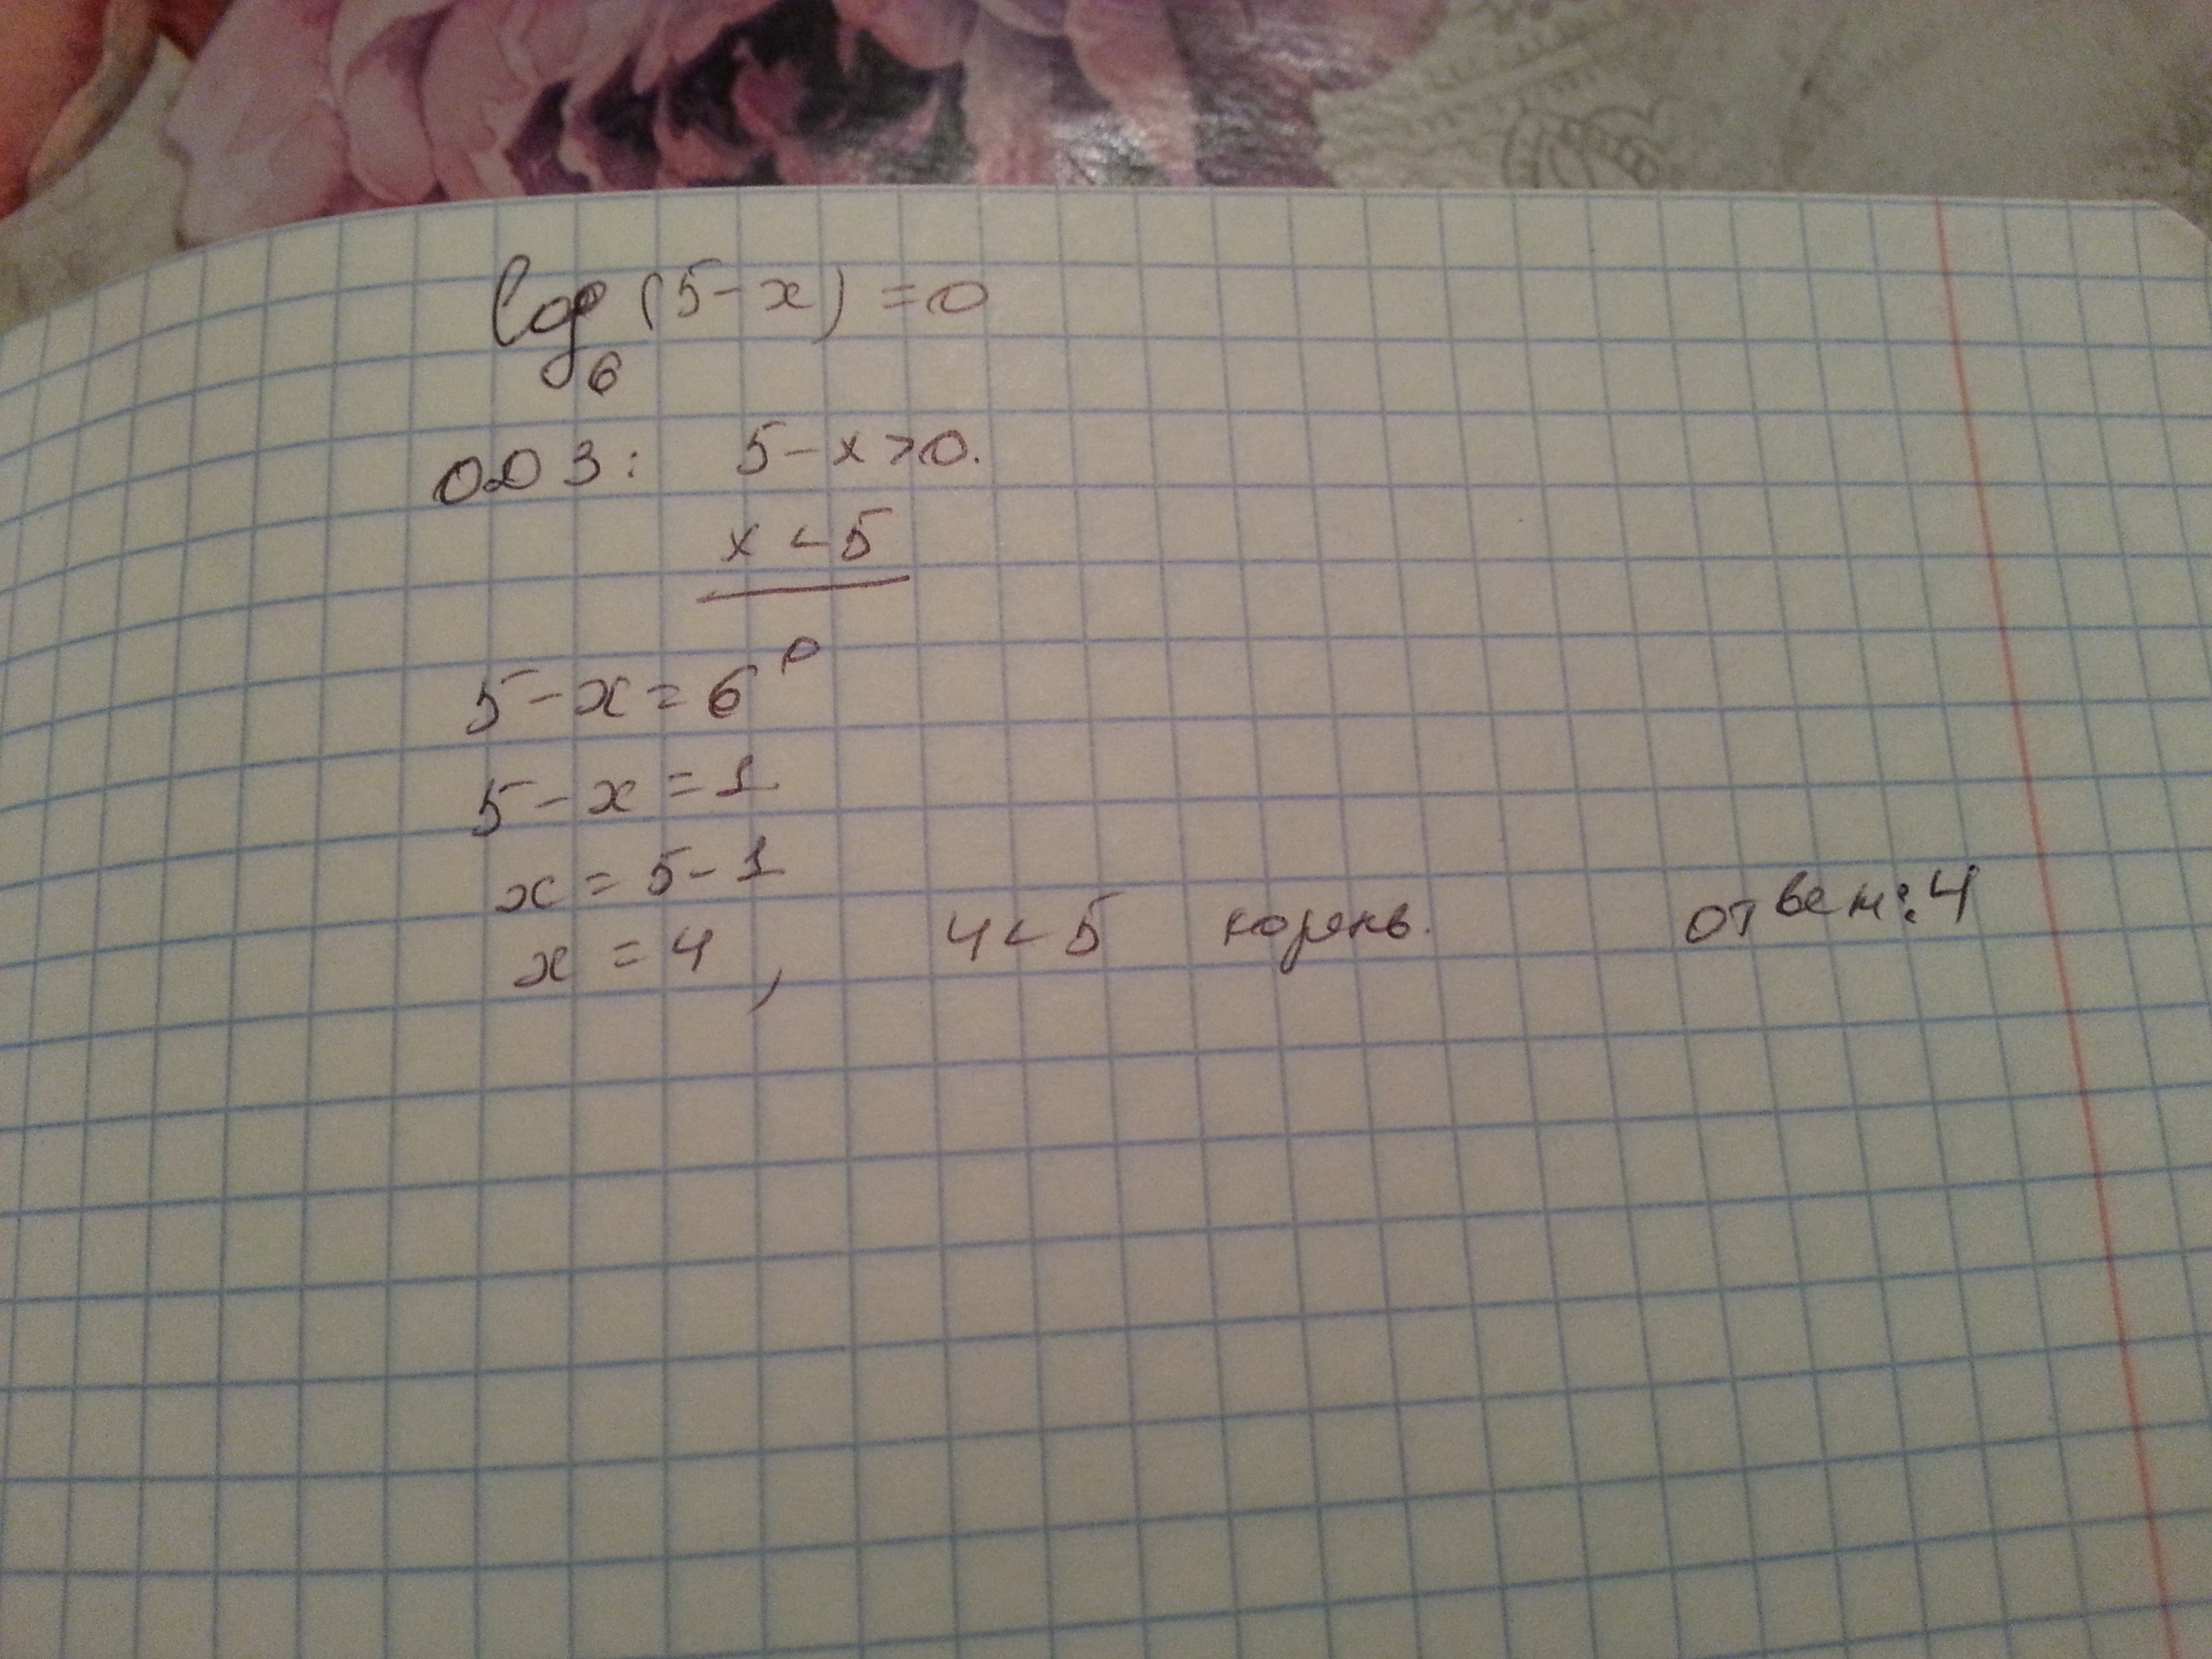 log₆(5-x)=0
ОДЗ: 5-x>0.
x<5
5-x=6⁰
5-x=1
x=5-1
x=4, 4<5 корень. ответ:4